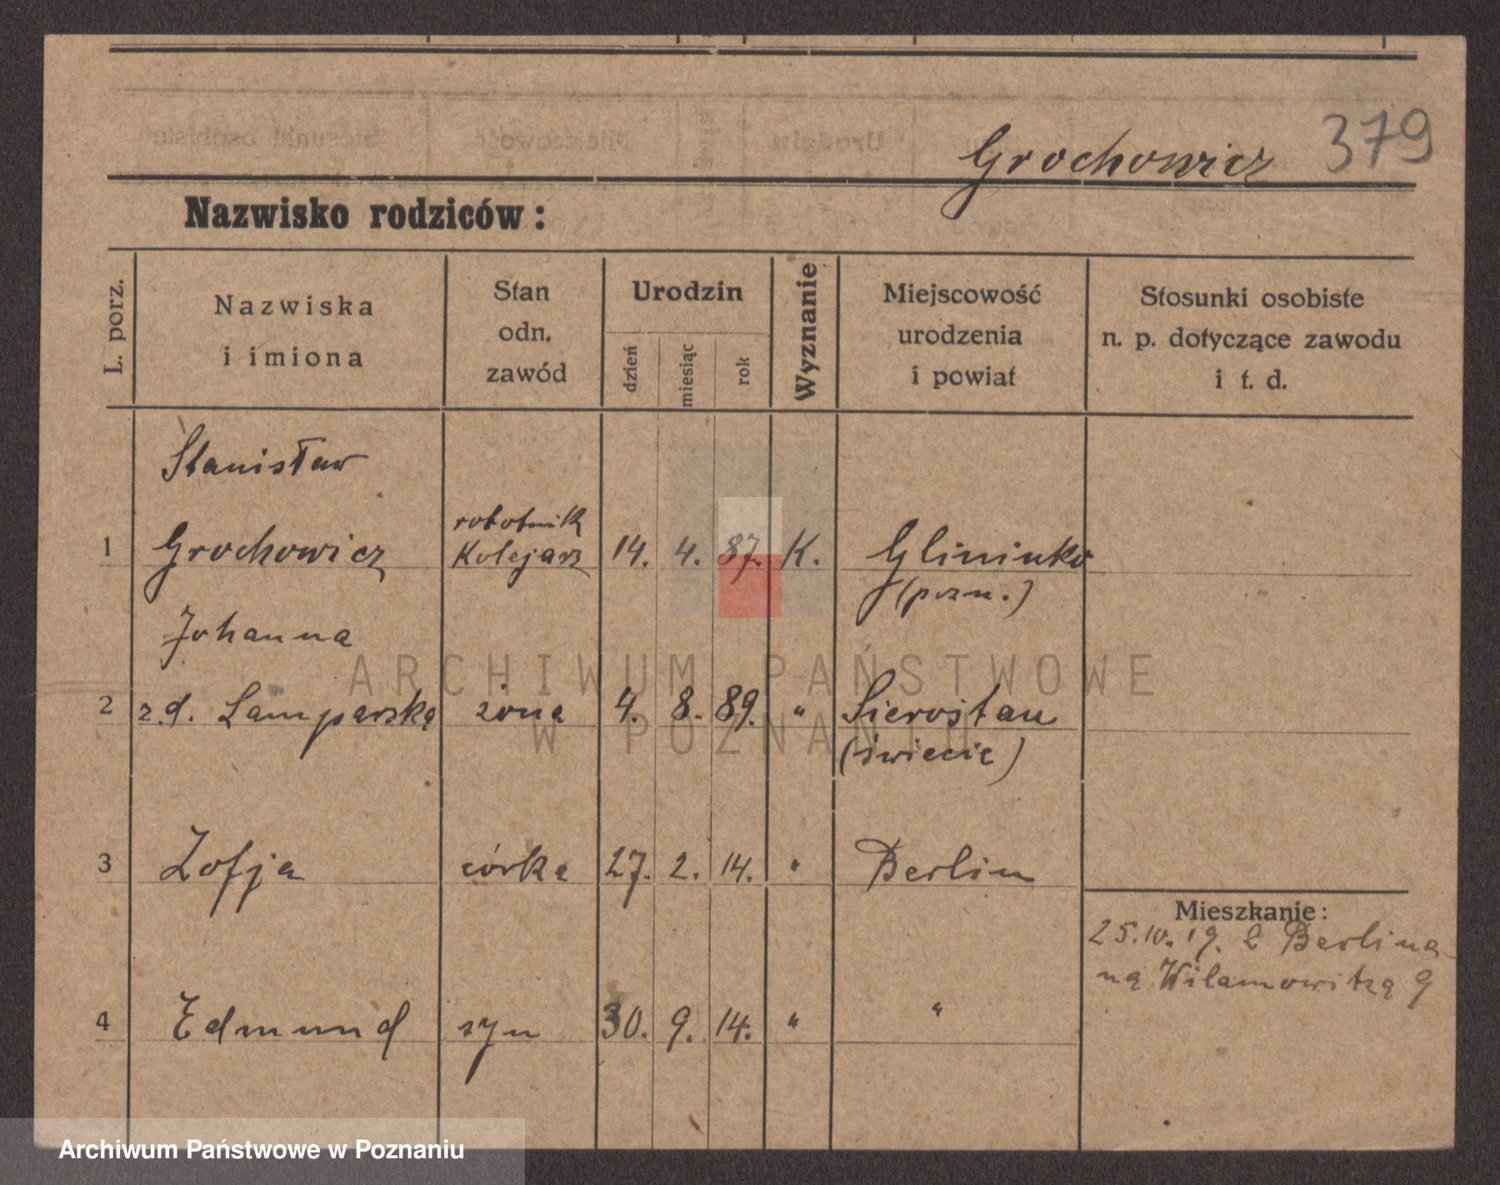 Grochowicz 379
Nazwisko rodziców:
L. porz.
Nazwiska
i imiona
Stan
odn.
zawód
Urodzin
dzień
miesiąc
rok
Wyznanie
Miejscowość
urodzenia
i powiat
Stosunki osobiste
n. p. dotyczące zawodu
i t. d.
Stanisław
robotnik
1 Grochowicz Kolejarz 14. 4. 87. K. Glininko
(pozn.)
Johanna
2 z.d. Lamparska żona 4. 8. 89. " Sierosław
(świecie)
3 Zofja córka 27. 2. 14. " Berlin
Mieszkanie:
25.10.19. z Berlina
na Wilamowitza 9
4 Edmund syn 30. 9. 14. " "
ARCHIWUM PAŃSTWOWE
W POZNANIU
Archiwum Państwowe w Poznaniu